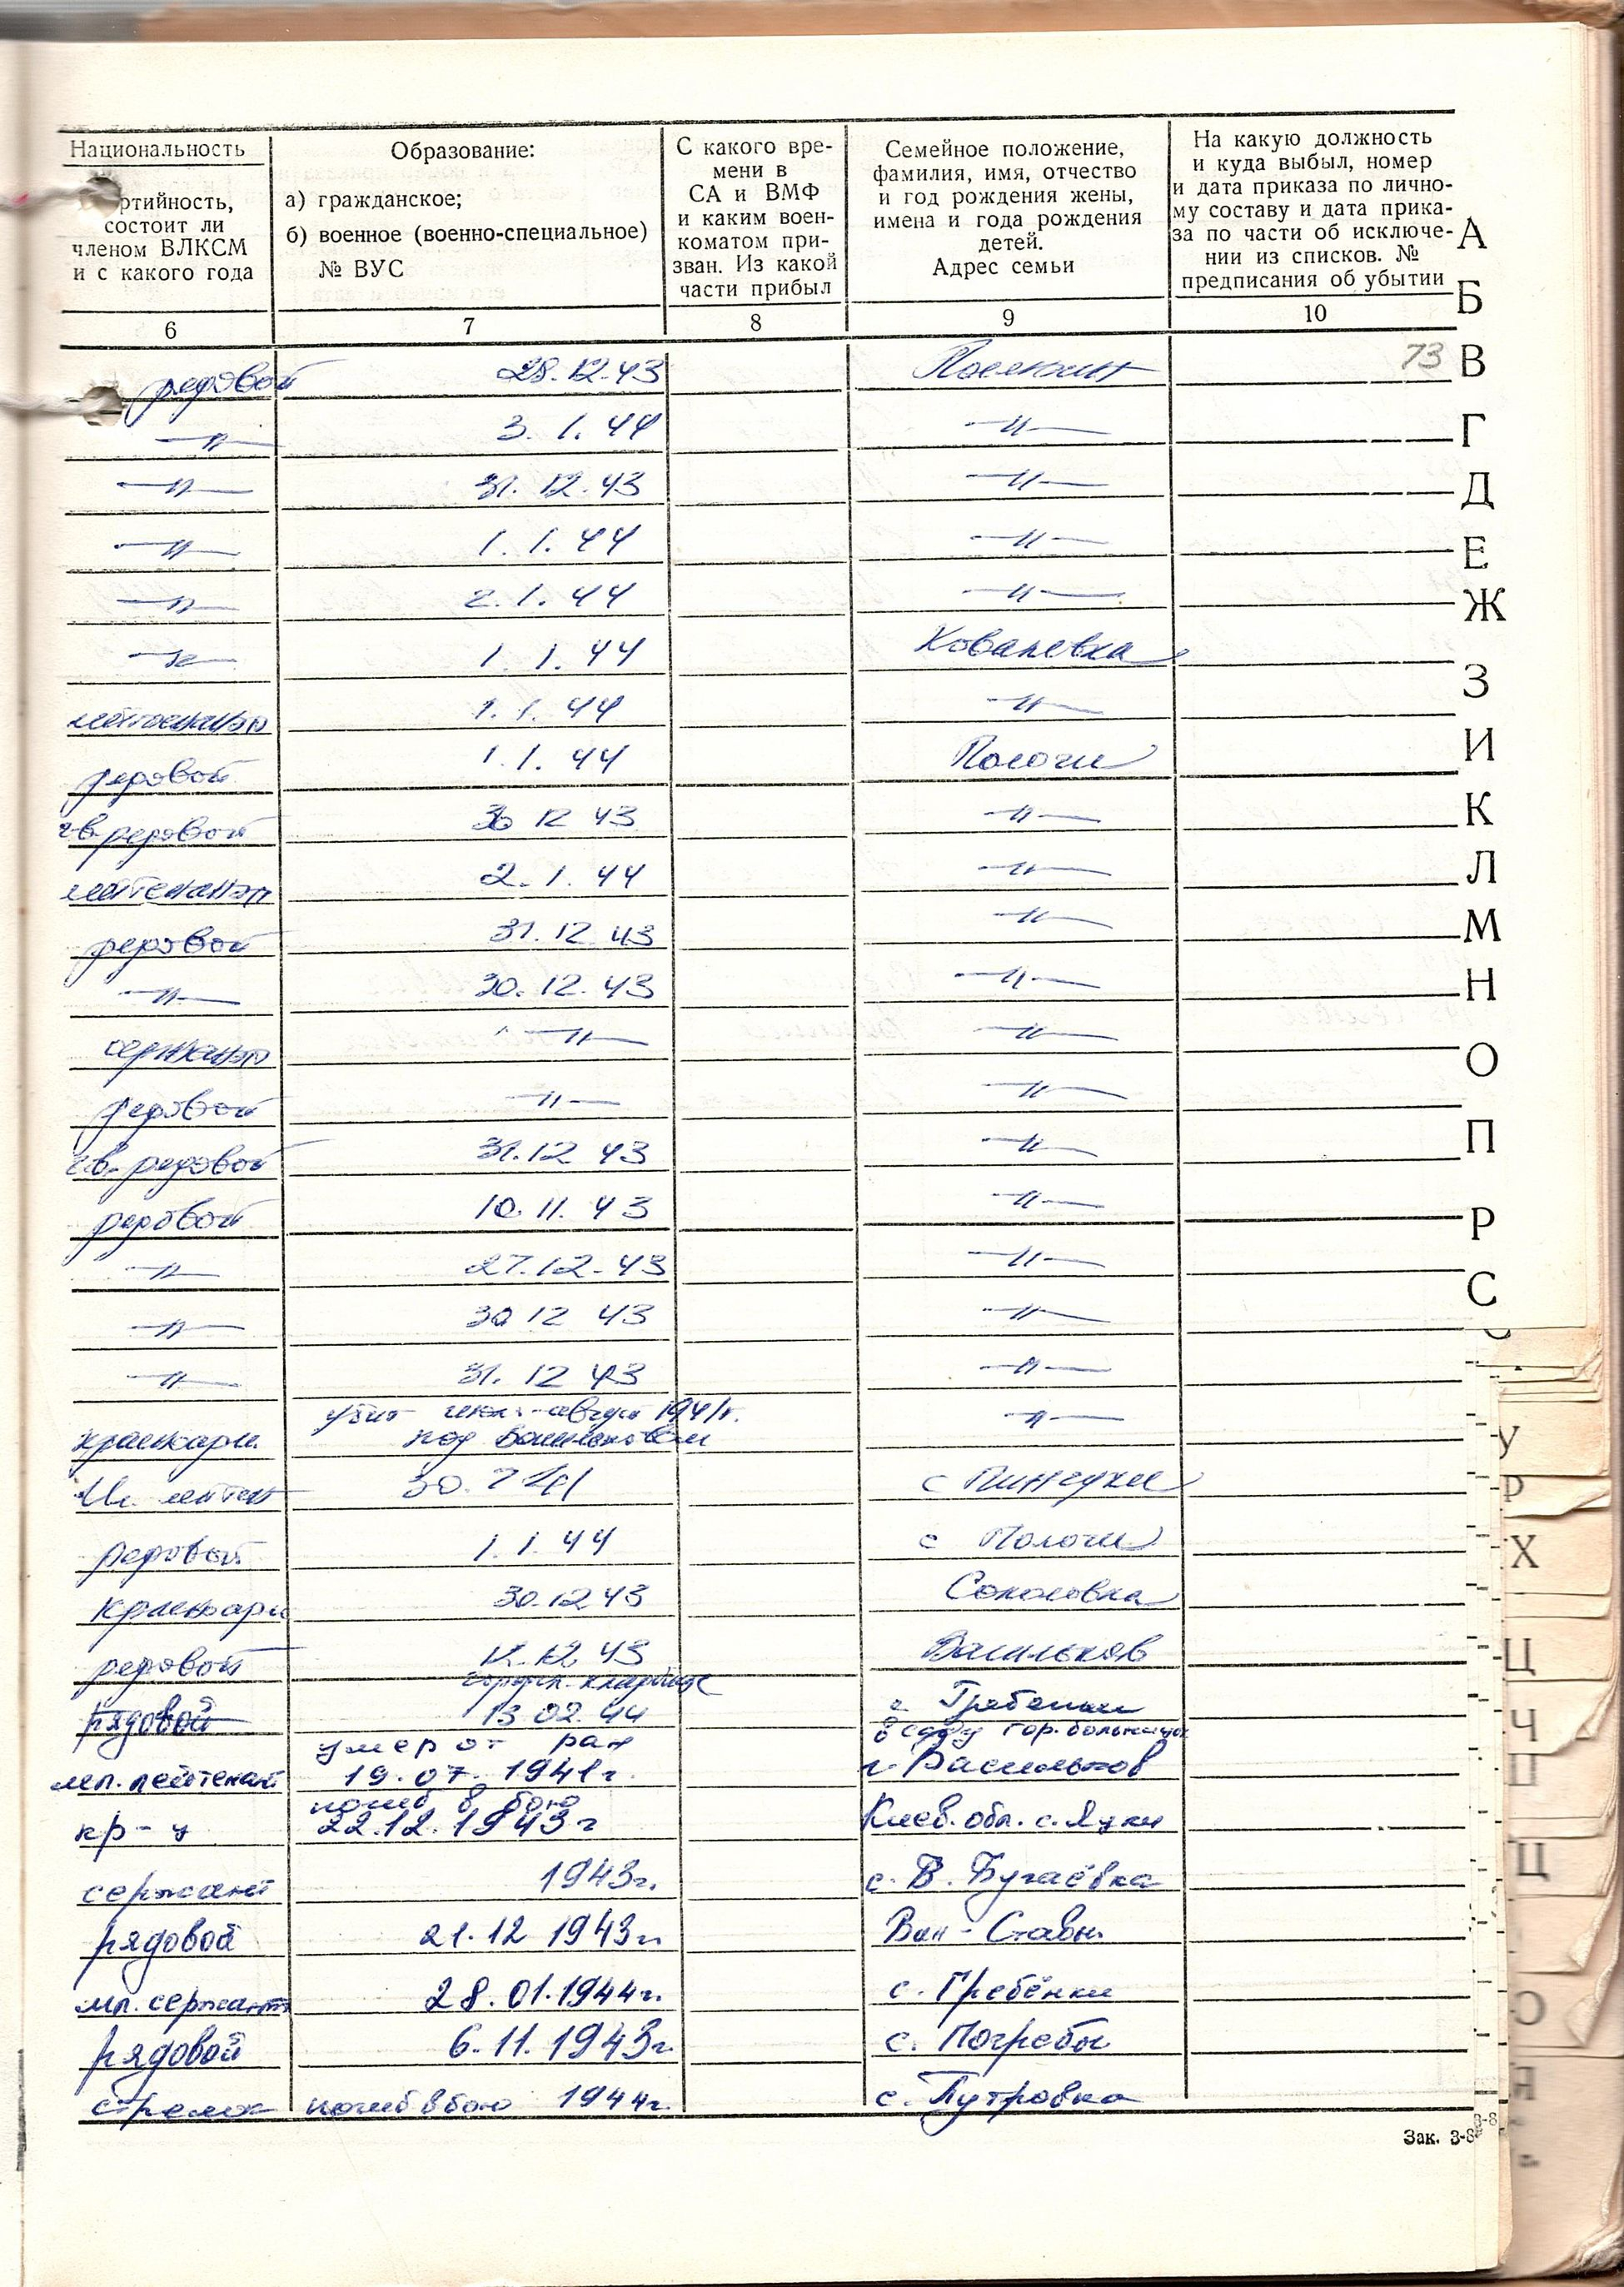 Национальность
ртийность,
состоит ли
членом ВЛКСМ
и с какого года
Образование:
а) гражданское;
б) военное (военно-специальное)
№ ВУС
С какого вре-
мени в
СА и ВМФ
и каким воен-
коматом при-
зван. Из какой
части прибыл
Семейное положение,
фамилия, имя, отчество
и год рождения жены,
имена и года рождения
детей.
Адрес семьи
На какую должность
и куда выбыл, номер
и дата приказа по лично-
му составу и дата прика-
за по части об исключе-
нии из списков. №
предписания об убытии
6 7 8 9 10
рядовой 28.12.43 73
—"— 3.1.44 —"—
—"— 31.12.43 —"—
—"— 1.1.44 —"—
—"— 2.1.44 —"—
—"— 1.1.44 Ковалевка
лейтенант 1.1.44 —"—
рядовой 1.1.44 Пологи
гв. рядовой 30 12 43 —"—
лейтенант 2.1.44 —"—
рядовой 31.12.43 —"—
—"— 30.12.43 —"—
сержант —"— —"—
рядовой —"— —"—
гв. рядовой 31.12 43 —"—
рядовой 10.11.43 —"—
—"— 27.12.43 —"—
—"— 30 12 43 —"—
—"— 31.12 43 —"—
убит июль-август 1941г.
красноарм. под Васильковом —"—
Мл. лейтен 30.7 41 с Пинчуки
рядовой 1.1.44 с Пологи
красноарм 30.12 43 Соколовка
рядовой 12.12 43 Васильков
рядовой 13.02.44 с. Гребенки
умер от ран в саду гор. больницы
мл. лейтенант 19.07.1941г. г. Васильков
погиб в бою
кр-ц 22.12.1943г Киев. обл. с. Яцки
сержант 1943г. с. В. Бугаёвка
рядовой 21.12 1943г. Вел-Ставы.
мл. сержант 28.01.1944г. с. Гребёнки
рядовой 6.11.1943г. с. Погребы
стрелок погиб в бою 1944г. с. Путровка
Зак. 3-8
А
Б
В
Г
Д
Е
Ж
З
И
К
Л
М
Н
О
П
Р
С
У
Р
Х
Ц
Ч
Ц
Ю
Я